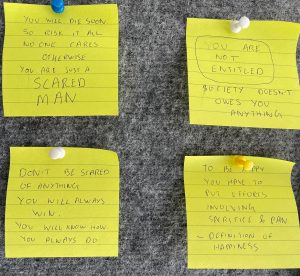 YOU WILL DIE SOON
SO RISK IT ALL
NO ONE CARES
OTHERWISE
YOU ARE JUST A
SCARED
MAN
YOU ARE
NOT
ENTITLED
SOCIETY DOESN'T
OWES YOU
ANYTHING
DON'T BE SCARED
OF ANYTHING
YOU WILL ALWAYS
WIN.
YOU WILL KNOW HOW
YOU ALWAYS DO
TO BE HAPPY
YOU HAVE TO
PUT EFFORTS
INVOLVING
SACRIFICE & PAIN
- DEFINITION OF
HAPPINESS